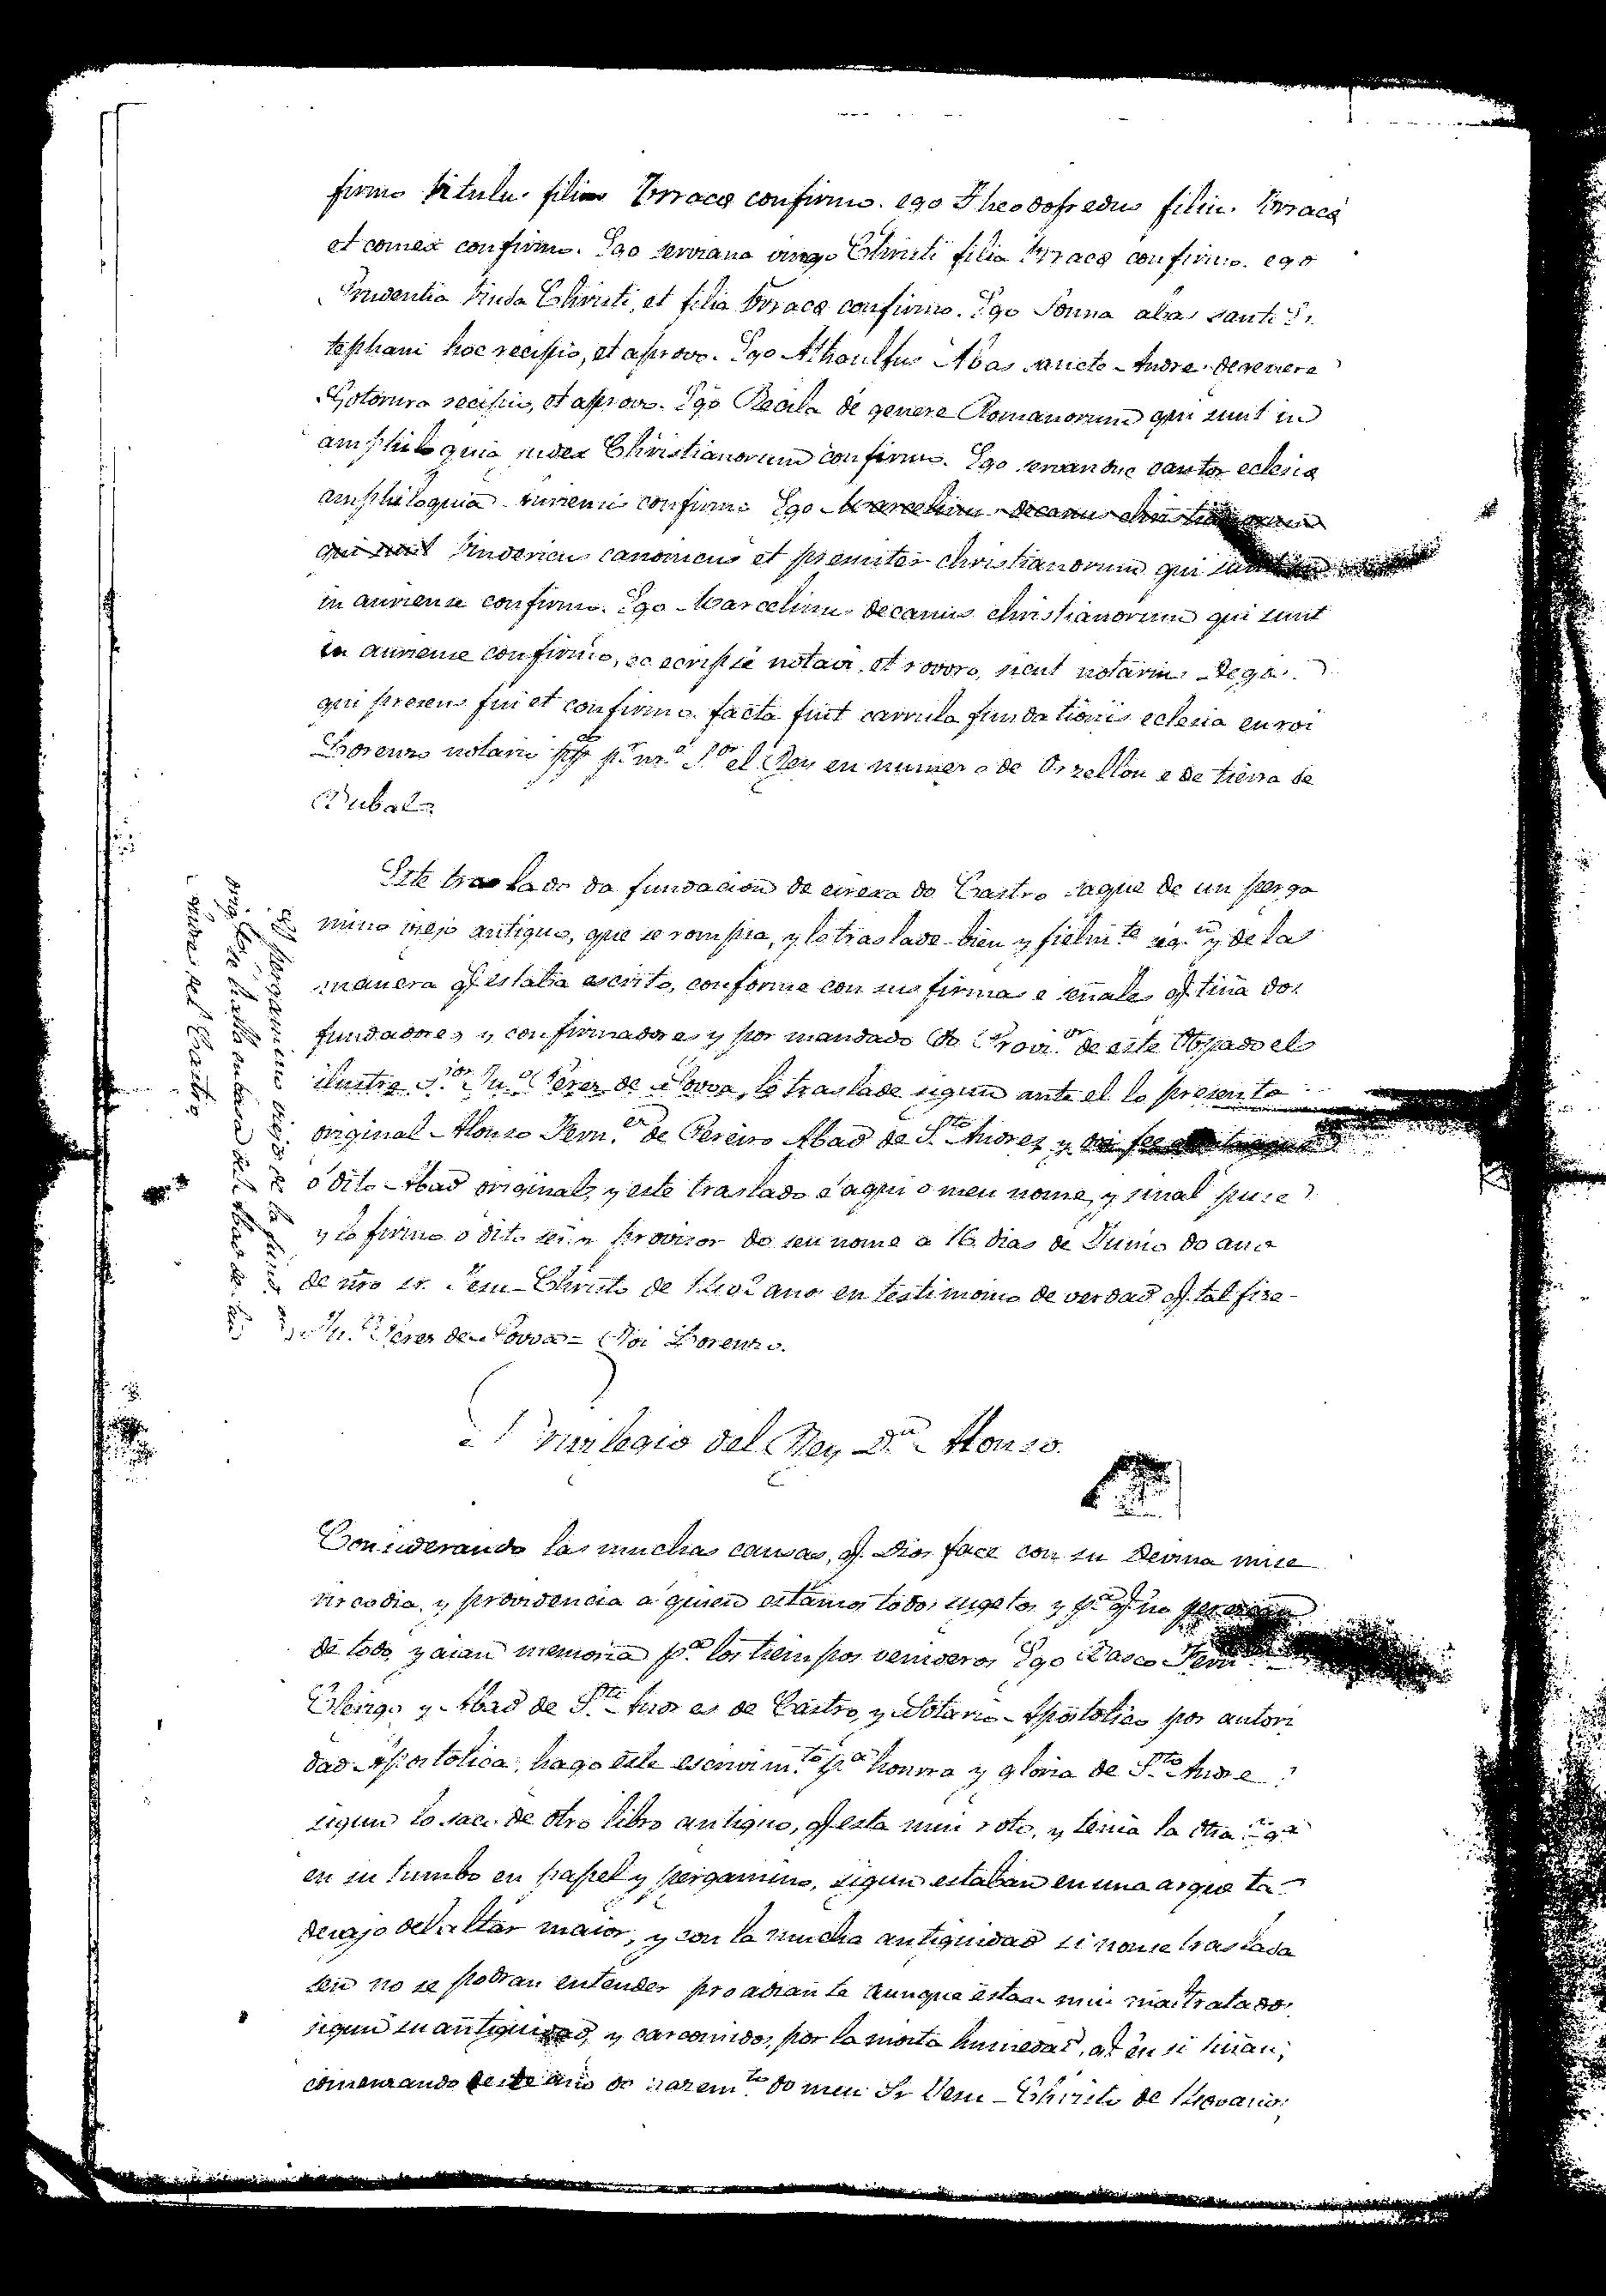 firmo Vitulu. filius Vrraca confirmo. ego Theodofredus filiu. Vrraca
et comex confirmo. Ego serviana virgo Christi filia Vrraca confirmo. ego
Prudentia viuda Christi, et filia Vrraca confirmo. Ego Sonna abas santi Es
tephani hoc recipio, et aprovo. Ego Athaulfus Abas sancto Andre. de genere
Gotorum recipio, et aprovo. Ego Recila de genere Romanorum qui sunt in
amphiloquia judex Christianorum confirmo. Ego servandus cantor eclesia
amphiloquia auriensis confirmo Ego Marcelinus decanus christianorum
qui sunt Vindericus canonicus et presviter christianorum qui sunt
in auriense confirmo. Ego Marcelinus decanus christianorum qui sunt
in auriense confirmo, ec scripsi é notavi, et rovoro, sicut notarius
qui presens fui et confirmo. facta fuit carrula fundationis eclesia eu roi
Lorenzo notario pp.co p.r nr.o S.or el Rey en numero de Orzellon e de tierra de
Bubal.
Este traslado da fundacion de eirexa do Castro saque de un perga
mino viejo antiguo, que se rompia, y lo traslade bien y fielm.te seg.n y de la
manera q.e estaba escrito, conforme con sus firmas e señales q.e tiña dos
fundadores y confirmadores y por mandado do Provi.or de este Obpado el
ilustre S.or Ju.o Perez de Novoa, lo traslade sigun ante el lo presento
original Alonso Fern.ez de Pereiro Abad de S.to Andrez y
o dito Abad original, y este traslado e aqui o meu nome, y sinal puse
y lo firmo o dito señor provisor do seu nome a 16 dias de Junio do ano
de nro sr. Jesu-Christo de anos en testimonio de verdad q.e tal fize-
Ju.o Perez de Novoa = Roi Lorenzo.
El pergamino viejo de la fund.on
orig.l se halla en casa del Abad de San
Andres del Castro
Privilegio del Rey D.n Alonso.
Considerando las muchas causas, q.e Dios face con su Devina mise
ricodia, y providencia a quien estamos todos sugetos y p.a q.e no perezcan
de todo, y aian memoria p.a los tiempos venideros Ego Vasco Fern
Clerigo y Abad de S.to Andres de Castro, y Notario Apostolico por autori
dad Apostolica, hago este escrivim.to p.a honrra y gloria de S.to Andre
sigun lo saco de otro libro antiguo, q.e esta mui roto, y tenia la dha
en su tumbo en papel y pergamino, sigun estaban en una arqueta
devajo del altar maior, y con la mucha antiguidad si non se traslada
sen no se podran entender pro adiante aunque estan mui maltratados
sigun su antiguidad, y carcomidos, por la moita humedad, q.e en si tiñan,
comenzando deste ano do nazem.to do meu Sr Jesu-Christo de